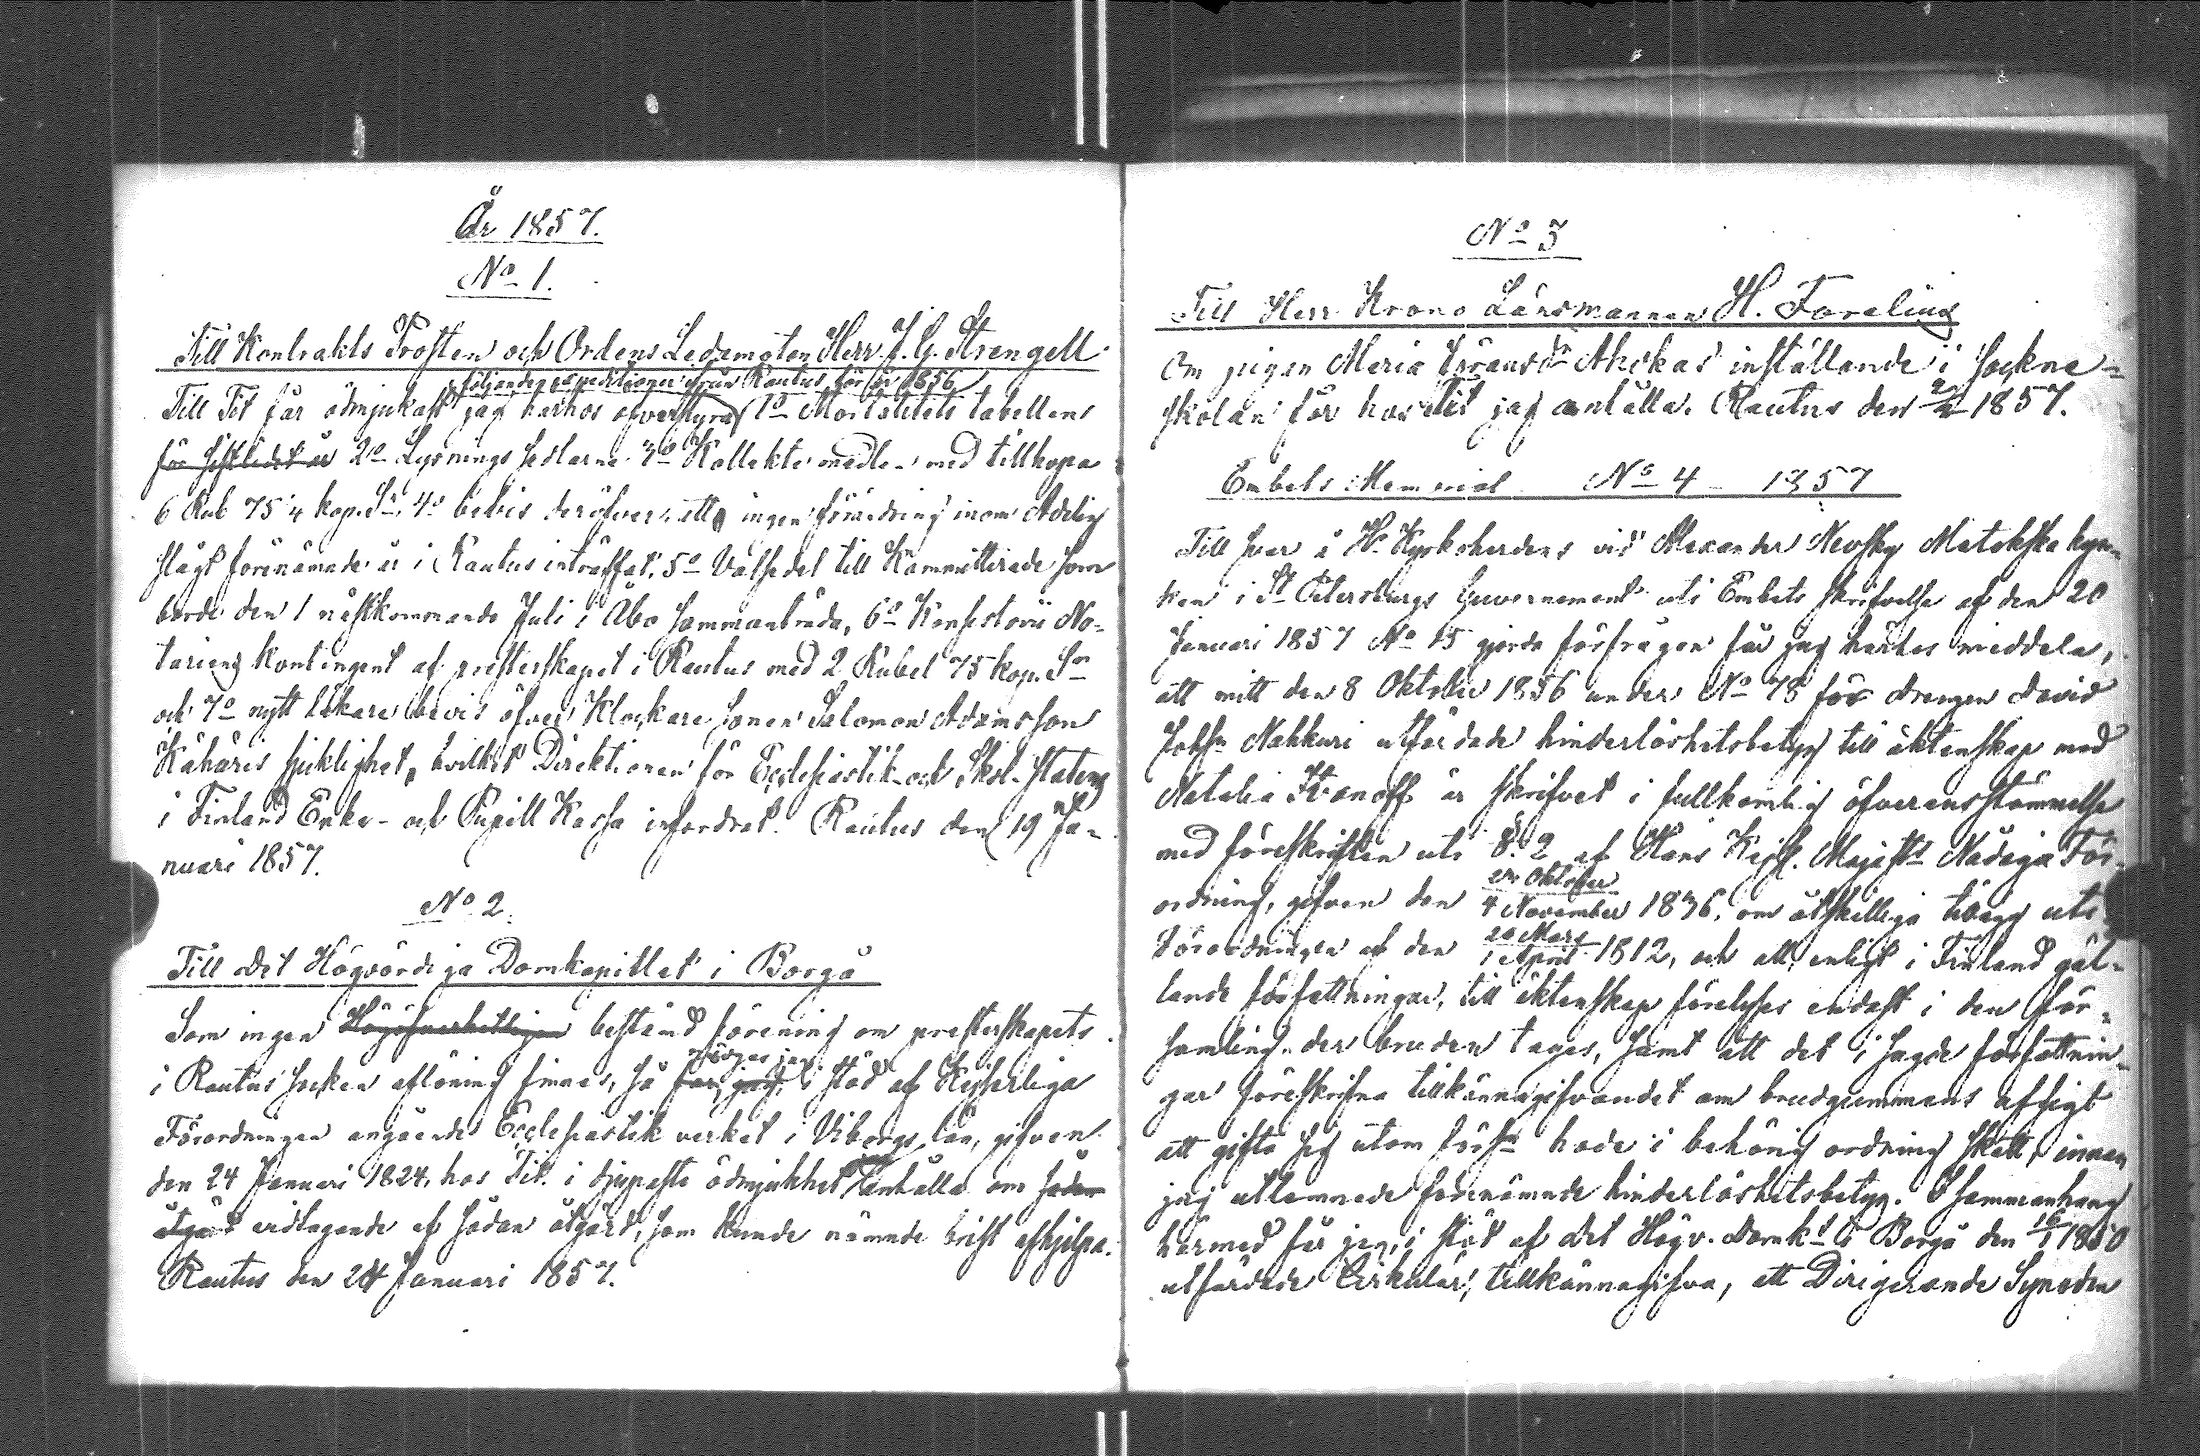 År 1857.
No 1.
Till Kontrakts Prosten och Ordens Ledamoten Herr J. G. Strengell
följande expeditioner från Rautus för år 1856
Till Tit får ödmjukast jag härhos öfverstyra 1o Mortalitets tabellen
för sistledet år 2o Lysnings sedlarne 3o Kollekte medlen med tillhopa
6 Rub 75 1/4 kop. Sr. 4o bevis deröfver, att ingen förändring inom Adelig
slägt förenämnde år i Rautus inträffat, 5o Valsedel till Kommitterade som
borde den 1 nästkommande Juli i Åbo sammanträda, 6o Konsistorii No-
tariens kontingent af presterskapet i Rautus med 2 Rubel 75 kop. Sr
och 7o nytt läkare bevis öfver Klockare sonen Salomon Adamsson
Kähäris sjuklighet, hvilket Direktionen för Ecclesiastik- och Skol-Statens
i Finland Enke- och Pupill Kassa infordrat. Rautus den 19 Ja-
nuari 1857.
No 2.
Till det Högvördiga Domkapitlet i Borgå
Som ingen bestämd förening om presterskapets
nödgas jag
i Rautus socken aflöning finnes, så får jag, i stöd af Kejserliga
Förordningen angående Ecclesiastik verket i Viborgs län, gifven
den 24 Januari 1824, hos Tit. i djupaste ödmjukhet anhålla om sådan
åtgärd vidtagande af sådan åtgärd, som kunde nämnde brist afhjelpa.
Rautus den 24 Januari 1857.
No 3
Till Herr Krono Länsmannen H. Foreling
Om pigan Maria Göransdr Ahokas inställande i sockne-
skolan får hos Tit jag anhålla. Rautus den 1857.
Embets Memorial No 4 1857
Till svar å Hr Kyrkoherdens vid Alexander Nevsky Matokska kyr-
kan i St Petersburgs Guvernement uti Embets skrifvelse af den 20
Januari 1857 No 15 gjorda förfrågan får jag härtas meddela,
att mitt den 8 Oktober 1856 under No 78 för drengen David
Johsn Nahkuri utfärdade hinderlöshetsbetyg till äktenskap med
Natalia Ivanoff är skrifvet i fullkomlig öfverensstämmelse
med föreskriften uti §. 2 af Hans Kejs. Majsts Nådiga För-
ordning, gifven den 23 Oktober / 4 November 1836, om åtskilliga tillägg uti
Förordningen af den 20 Mars / 1 April 1812, och att, enligt i Finland gäl-
lande författningar, till äktenskap förelyses endast i den för-
samling, der bruden tages, samt att det i sagde författnin-
gar föreskrifna tillkännagifvandet om brudgummans afsigt
att gifta sig utom försn hade i behörig ordning skett, innan
jag utlemnade förenämnde hinderlöshetsbetyg. I sammanhang
härmed får jag, i stöd af det Högv. Domkts i Borgå den 1850
utfärdade Cirkulär, tillkännagifva, att Dirigerande Synoden